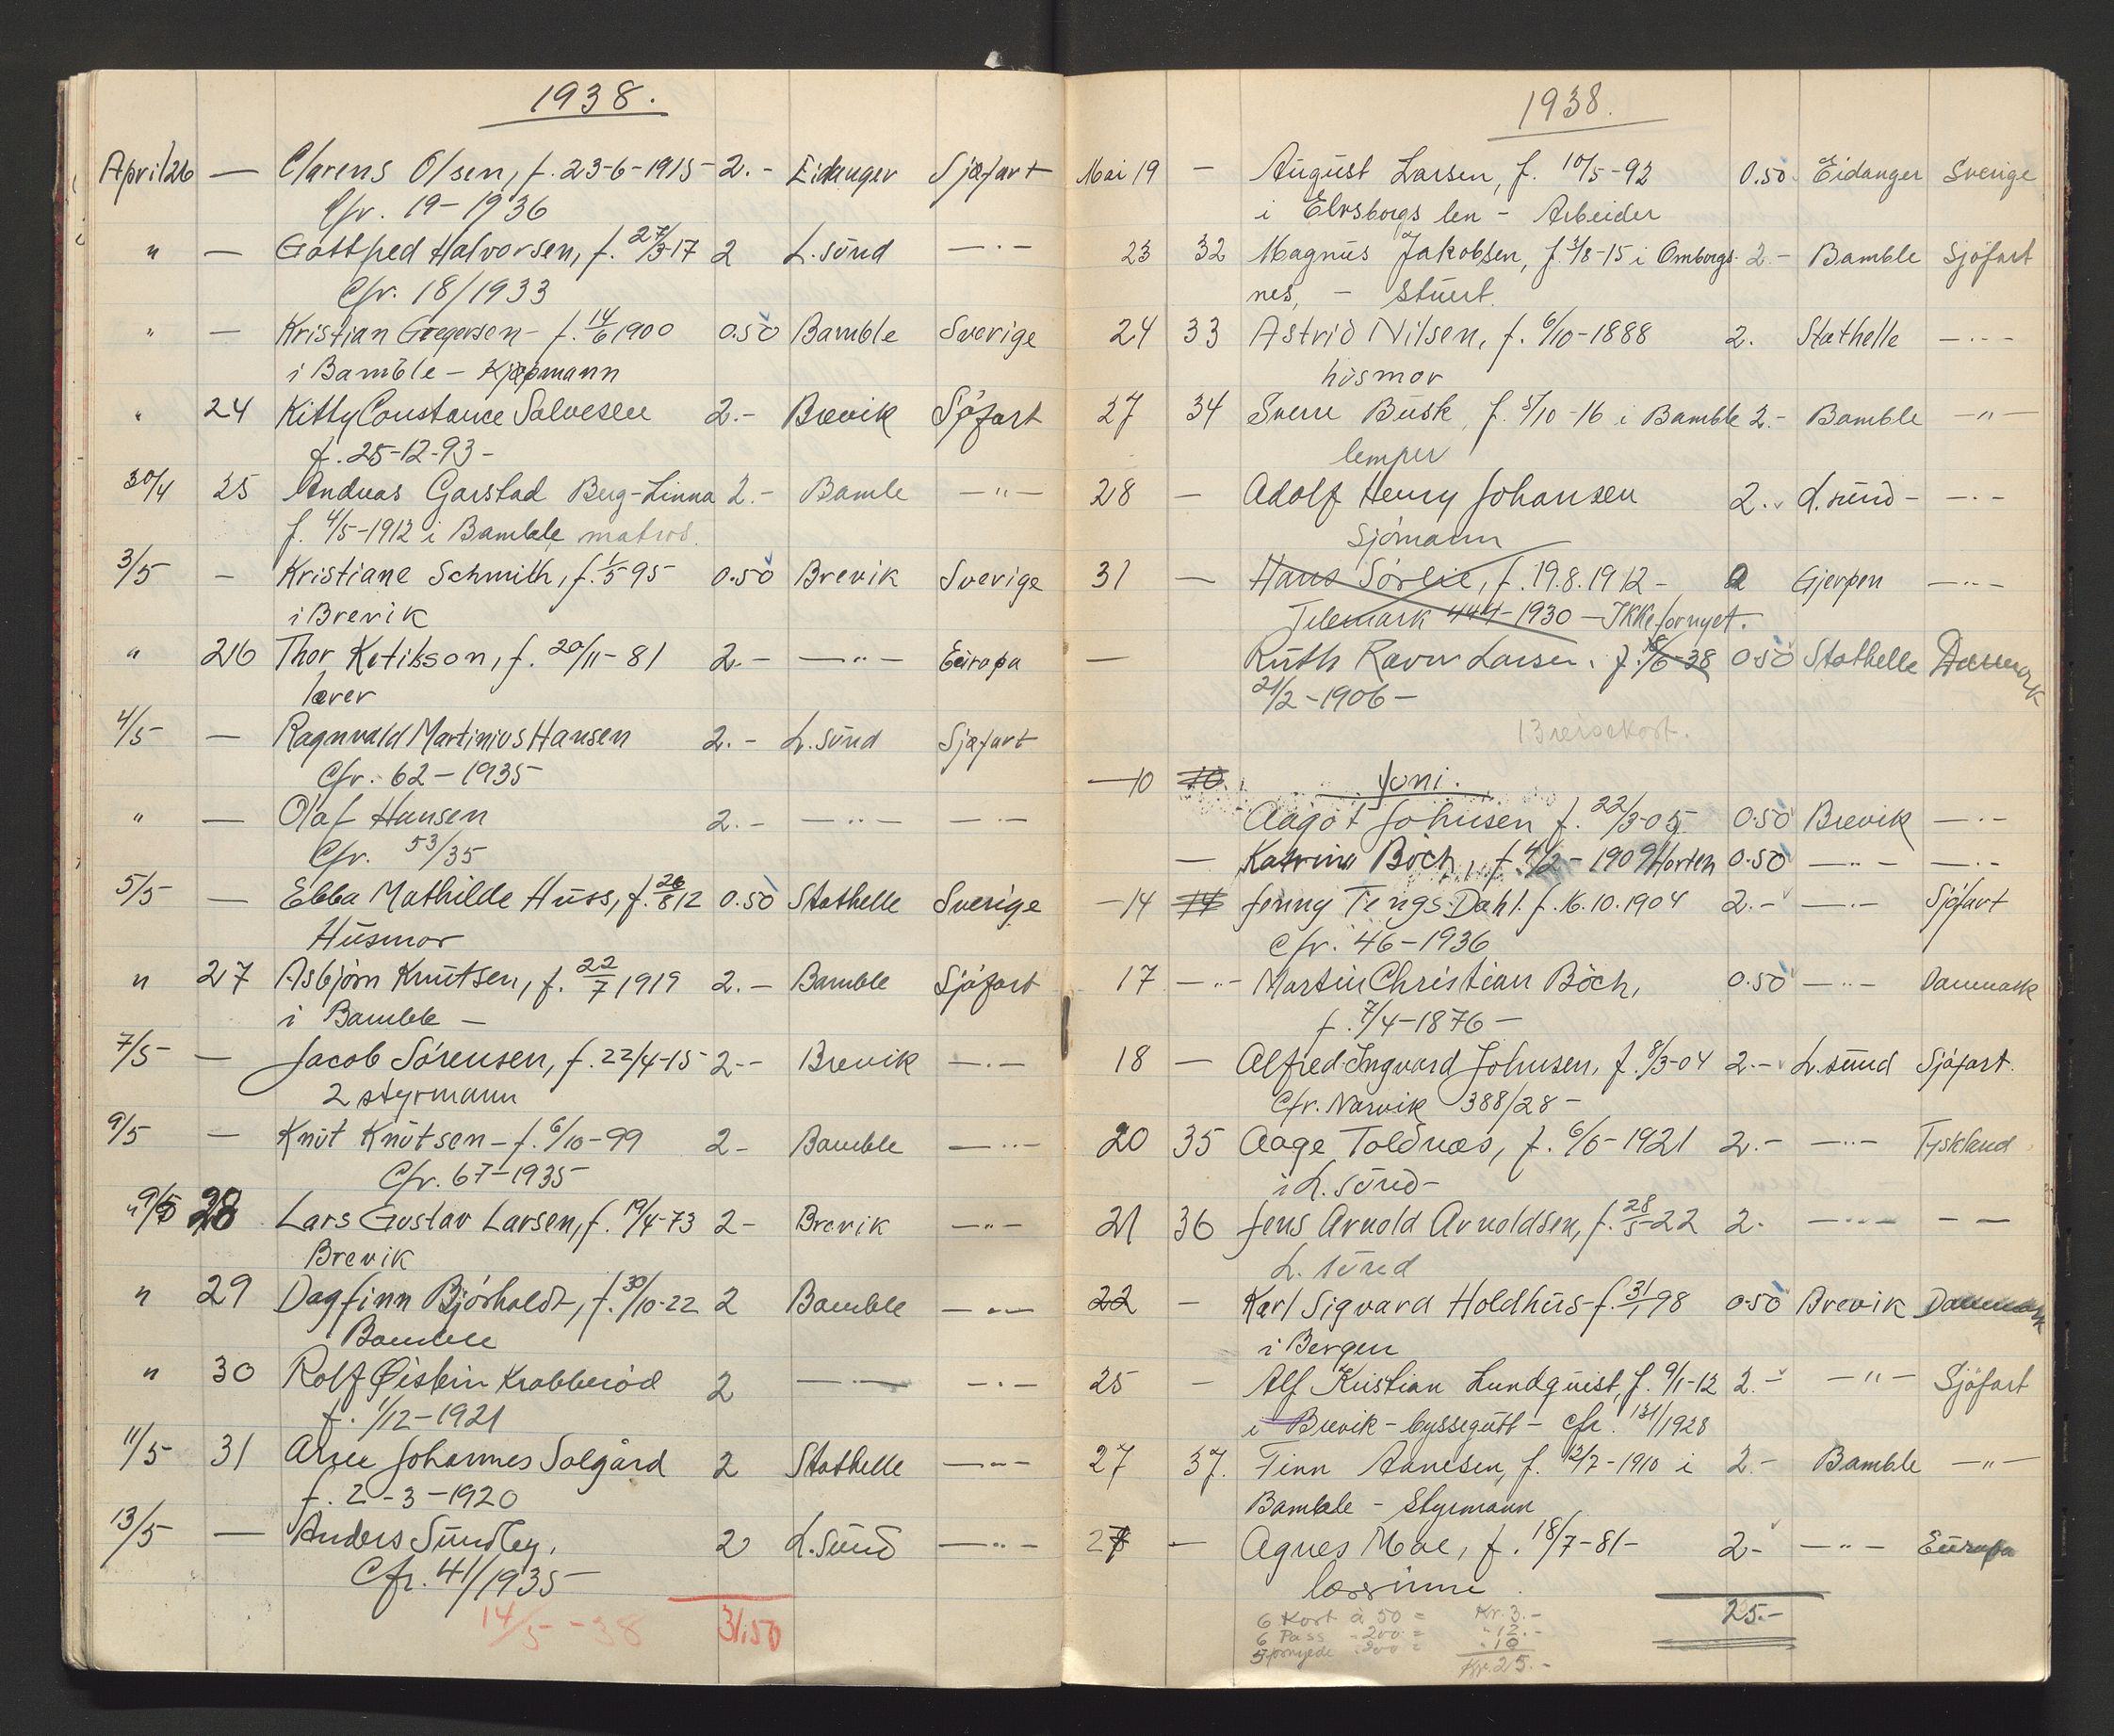 1938.
April 26 — Clarens Olsen, f. 23-6-1915- 2.- Eidanger Sjøfart
Cfr. 19-1936
" — Gottfred Halvorsen, f. 27/3-17 2 L.sund —·—
Cfr. 18/1933
" — Kristian Gregersen - f. 14/6 1900 0.50 Bamble Sverige
i Bamble - Kjøpmann
" 24 Kitty Constance Salvesen 2.- Brevik Sjøfart
f. 25-12-93-
30/4 25 Andreas Garstad Berg-Linna 2.- Bamle —"—
f. 4/5-1912 i Bamble, matros.
3/5 - Kristiane Schmith, f. 1/5 95 0.50 Brevik Sverige
i Brevik
" 26 Thor Ketilsson, f. 20/11-81 2.- —"— Europa
lærer
4/5 — Ragnvald Martinius Hansen 2.- L.sund Sjøfart
Cfr. 62-1935
" — Olaf Hansen 2.- —"— —·—
Cfr. 53/35
5/5 — Ebba Mathilde Huss, f. 26/8 12 0.50 Stathelle Sverige
Husmor
" 27 Asbjörn Knutsen, f. 22/7 1919 2.- Bamble Sjöfart
i Bamble -
7/5 — Jacob Sörensen, f. 22/4-15- 2.- Brevik —·—
2 styrmann
9/5 — Knut Knutsen - f. 6/10-99 2- Bamble —"—
Cfr. 67-1935
9/5 28 Lars Gustav Larsen, f. 19/4-73 2- Brevik —"—
Brevik
" 29 Dagfinn Bjórholdt, f. 30/10-22 2 Bamble —"—
Bamble
" 30 Rolf Øistein Krabberöd 2 —·— —·—
f. 1/12-1921
11/5 31 Arne Johannes Solgård 2 Stathelle —"—
f. 2-3-1920
13/5 — Anders Sundby, 2 L.sund —"—
Cfr. 41/1935-
14/5-38 31,50
1938.
Mai 19 - August Larsen, f. 10/5-92 0.50 Eidanger Sverige
i Elvsborgs len - Arbeider
23 32 Magnus Jakobsen, f. 3/8-15 i Ombergs- 2.- Bamble Sjöfart
nes, - stuert.
24 33 Astrid Nilsen, f. 6/10-1888 2. Stathelle —"—
husmor
27 34 Sverre Busk, f. 5/10-16 i Bamble 2.- Bamble —"—
lemper
28 - Adolf Henry Johansen 2. L.sund- —·—
Sjómann
31 — Hans Sørlie, f. 19.8.1912- 2 Gjerpen —"—
Telemark 444-1930 - Ikke fornyet.
— Ruth Ravn Larsen, f. 18/6-38 0.50 Stathelle Danmark
21/2-1906-
13 reisekort.
—10 10 Juni.
Aagot Johnsen f. 22/3-05 0.50 Brevik —·—
— Katrine Böch, f. 4/2-1909 Horten 0.50 —"— —·—
-14 14 Jenny Tengs Dahl. f. 16.10.1904 2.- —·— Sjöfart
Cfr. 46-1936
17 —"— Martin Christian Böch, 0.50 —"— Danmark
f. 7/4-1876-
18 — Alfred Ingvard Johnsen, f. 8/3-04 2.- L.sund Sjöfart.
Cfr. Narvik 388/28-
20 35 Aage Toldnæs, f. 6/6-1921 2.- —"— Tyskland
i L.sund-
21 36 Jens Arnold Arnoldsen, f. 28/5-22 2. —"— — —
L.sund
22 - Karl Sigvard Holdhus- f. 31/1 98 0.50 Brevik Danmark
i Bergen
25 - Alf Kristian Lundquist, f. 9/1-12 2.- —"— Sjöfart
i Brevik - byssegutt - cfr. 131/1928
27 37. Finn Aanesen, f. 12/7-1910 i 2.- Bamble —"—
Bamble - Styrmann
27 — Agnes Moe, f. 18/7-81- 2- —"— Europa
lærerinne
25.-
6 Kort à 50 = Kr. 3.-
6 Pass - 200 = " 12.-
5 fornyede " 200 = " 10
Kr. 25.-